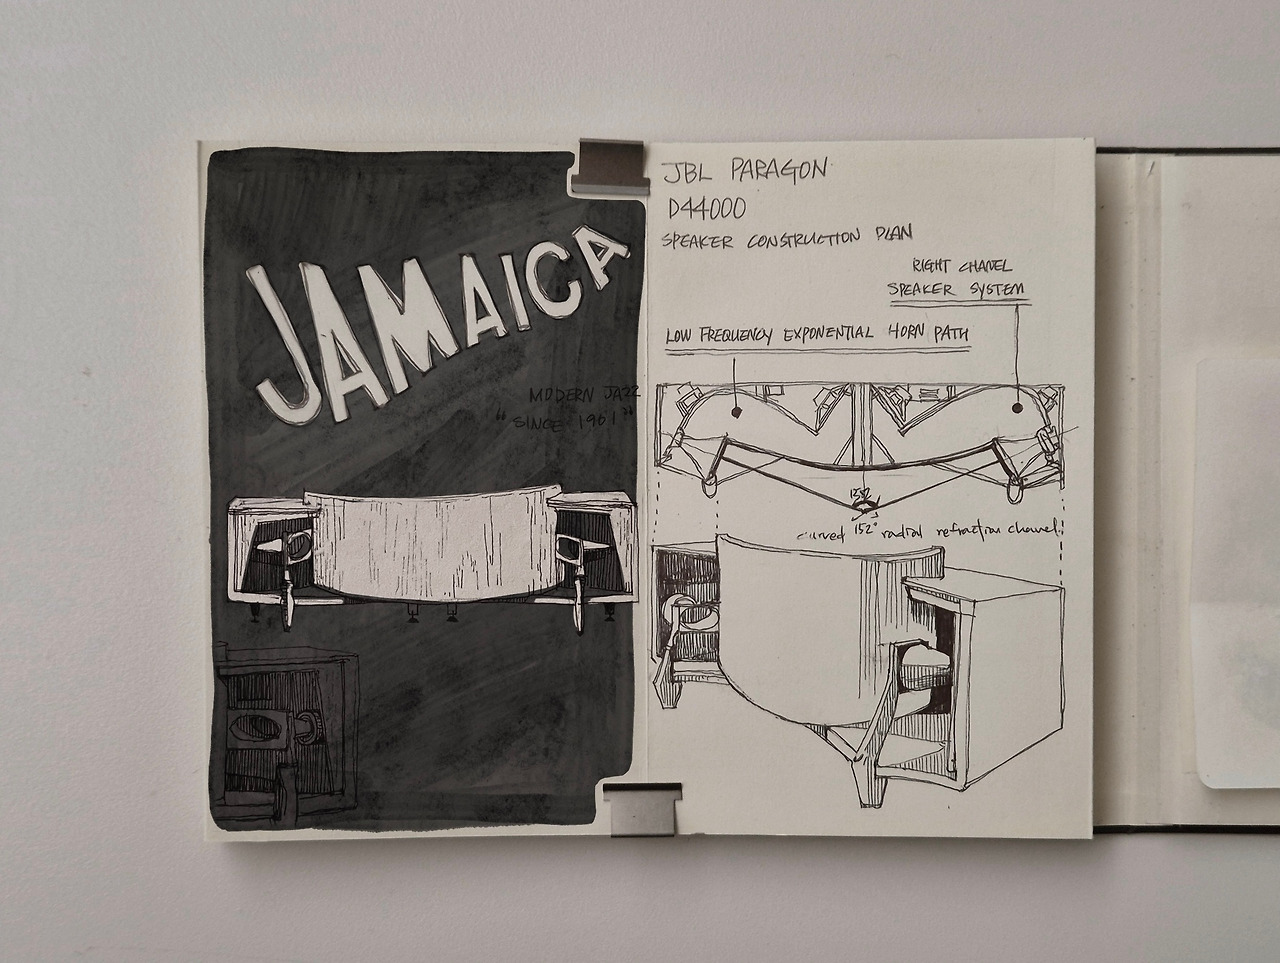 JAMAICA
MODERN JAZZ
"SINCE 1961"
JBL PARAGON
D44000
SPEAKER CONSTRUCTION PLAN
RIGHT CHANEL
SPEAKER SYSTEM
LOW FREQUENCY EXPONENTIAL HORN PATH
curved 152° radial refraction chanel